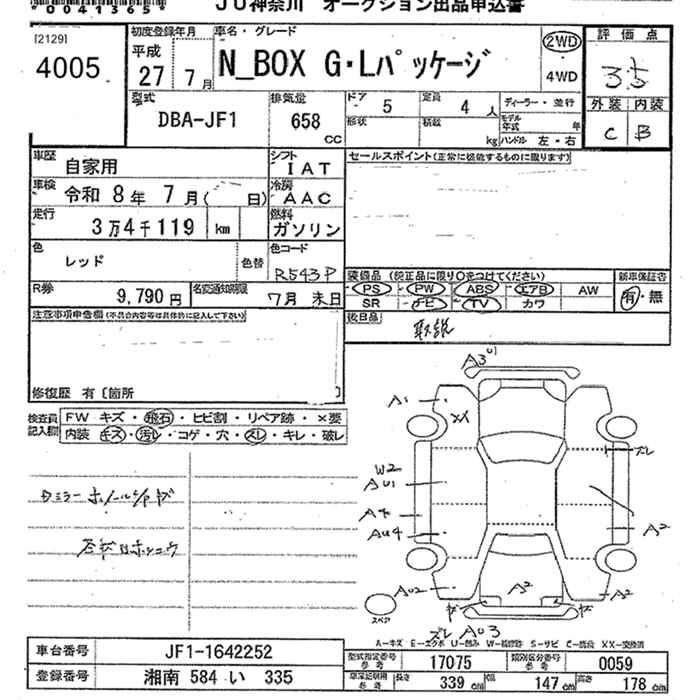 *00413659*
JU神奈川 オークション出品申込書
[2129]
4005
初度登録年月
平成
27 7月
車名・グレード
N_BOX G・Lパッケージ
2WD
4WD
評価点
3.5
外装 内装
C B
型式
DBA-JF1
排気量
658 cc
ドア 5
定員 4人
ディーラー・並行
形状
積載 kg
モデル年式 年
ハンドル 左・右
車歴
自家用
シフト
IAT
セールスポイント(正常に機能するものに限ります)
車検
令和 8年 7月( 日)
冷房
AAC
走行
3万4千119 km
燃料
ガソリン
色
レッド
色替
色コード
R543P
R券
9,790円
名変通知期限
7月 末日
装備品(純正品に限り○をつけてください)
PS PW ABS エアB AW
SR ナビ TV カワ
新車保証書
有・無
後日品
取説
注意事項申告欄(不具合内容等は具体的に記入して下さい)
修復歴 有〔箇所
検査員記入欄
FW キズ・飛石・ヒビ割・リペア跡・×要
内装 キズ・汚レ・コゲ・穴・スレ・キレ・破レ
A3 U1
A1
XX
ズレ
W2
AU1
A4
AU4
A2
AU2
A2
A2
スペア
ズレ AU3
A-キズ E-エクボ U-凹み W-補修跡 S-サビ C-腐食 XX-交換済
車台番号 JF1-1642252
登録番号 湘南 584 い 335
型式指定番号 参考 17075
類別区分番号 参考 0059
車庫証明用 参考 長さ 339 cm 幅 147 cm 高さ 178 cm